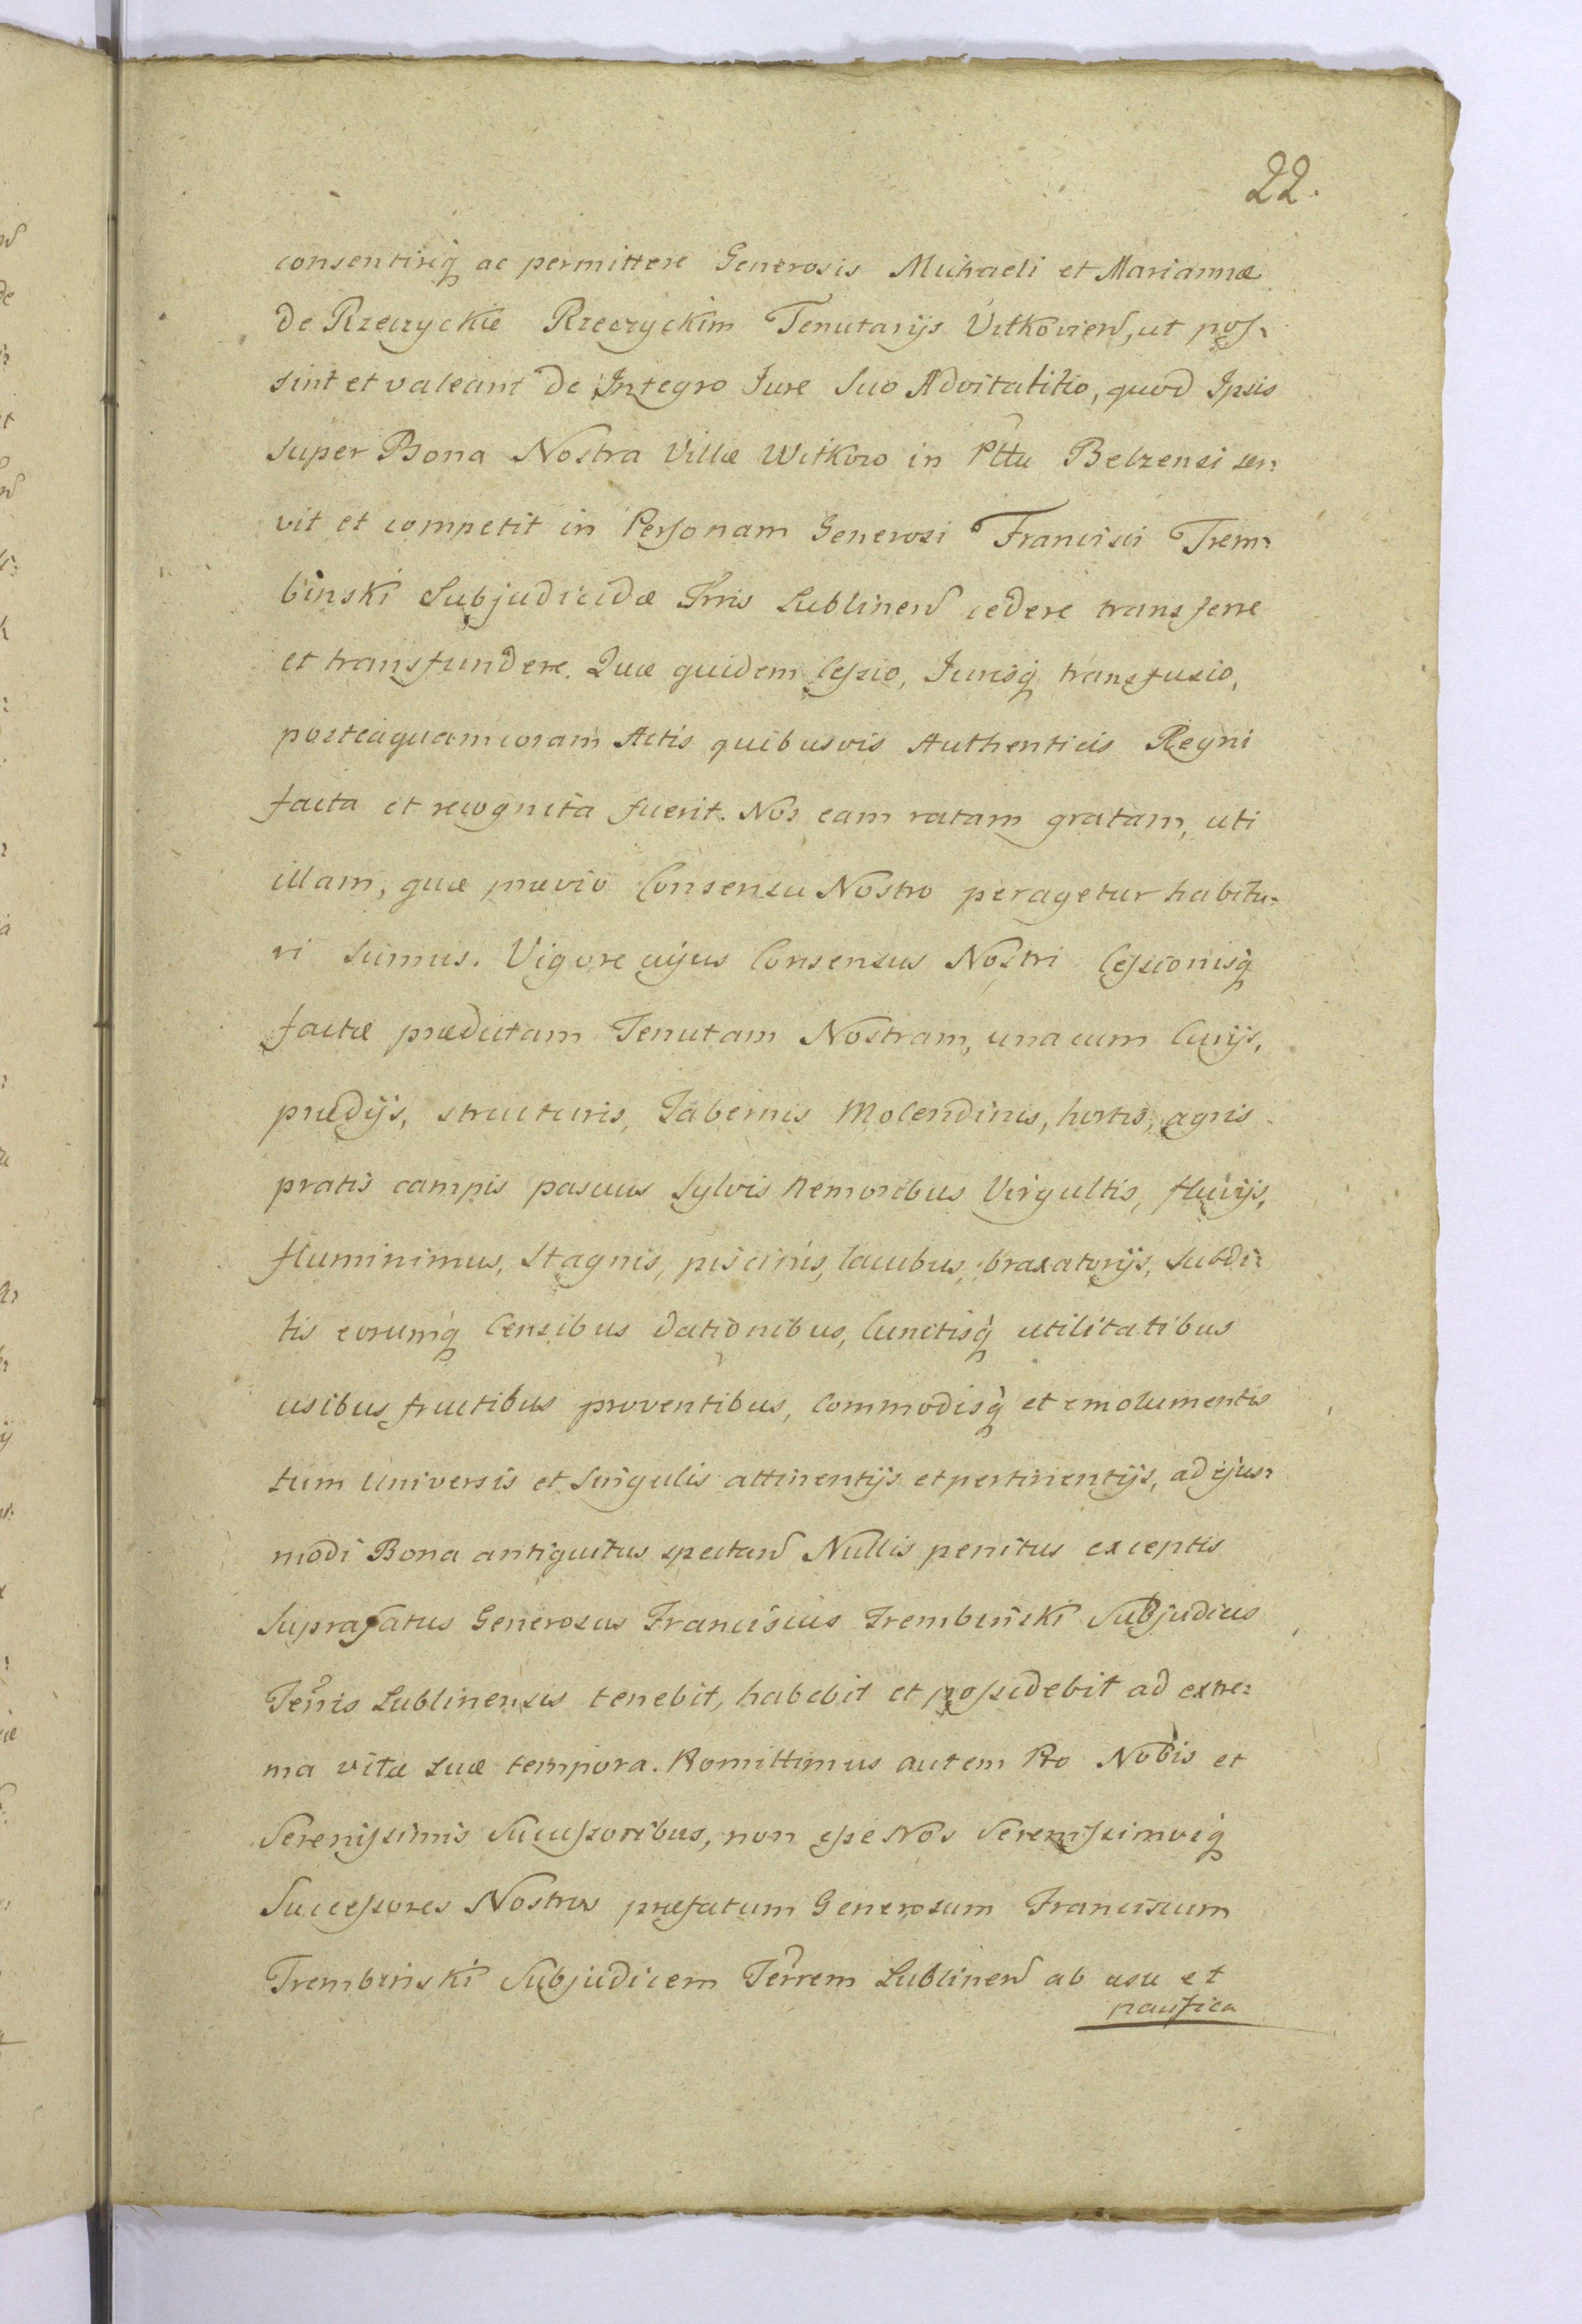 22.
consentireq́ ac permittere Generosis Michaeli et Mariannæ
de Rzeczyckie Rzeczyckim Tenutarijs Vitkovien, ut pos=
sint et valeant de Integro Jure Suo Advitalitio, quod Ipsis
super Bona Nostra Villæ Witkow in Pttu Belzensi ser=
vit et competit in Personam Generosi Francisci Trem=
binski Subjudicidæ Trris Lublinen cedere transferre
et transfundere. Quæ quidem Cessio, Jurisq́ transfusio,
posteaquam coram Actis quibusvis Authenticis Regni
facta et recognita fuerit. Nos eam ratam gratam, uti
illam, quæ prævio Consensu Nostro peragetur habitu=
ri sumus. Vigore cujus Consensus Nostri Cessionisq́
factæ prædictam Tenutam Nostram, una cum Curijs,
prædijs, structuris, Tabernis Molendinis, hortis, agris
pratis campis pascuis Sylvis Nemoribus Virgultis, fluvijs,
fluminimus, Stagnis, piscinis, lacubus, braxatorijs, Subdi=
tis eorumq́ Censibus dationibus, Cunctisq́ utilitatibus
usibus fructibus proventibus, Commodisq́ et emolumentis
tum Universis et Singulis attinentijs et pertinentijs, ad ejus=
modi Bona antiquitus spectan Nullis penitus exceptis
Suprafatus Generosus Franciscus Trembinski Subjudicus
Terris Lublinensis tenebit, habebit et possidebit ad extre=
ma vitæ suæ tempora. Promittimus autem Pro Nobis et
Serenissimis Successoribus, non esse Nos Serenissimosq́
Successores Nostros præfatum Generosum Franciscum
Trembinski Subjudicem Terrem Lublinen ab usu et
pacifica